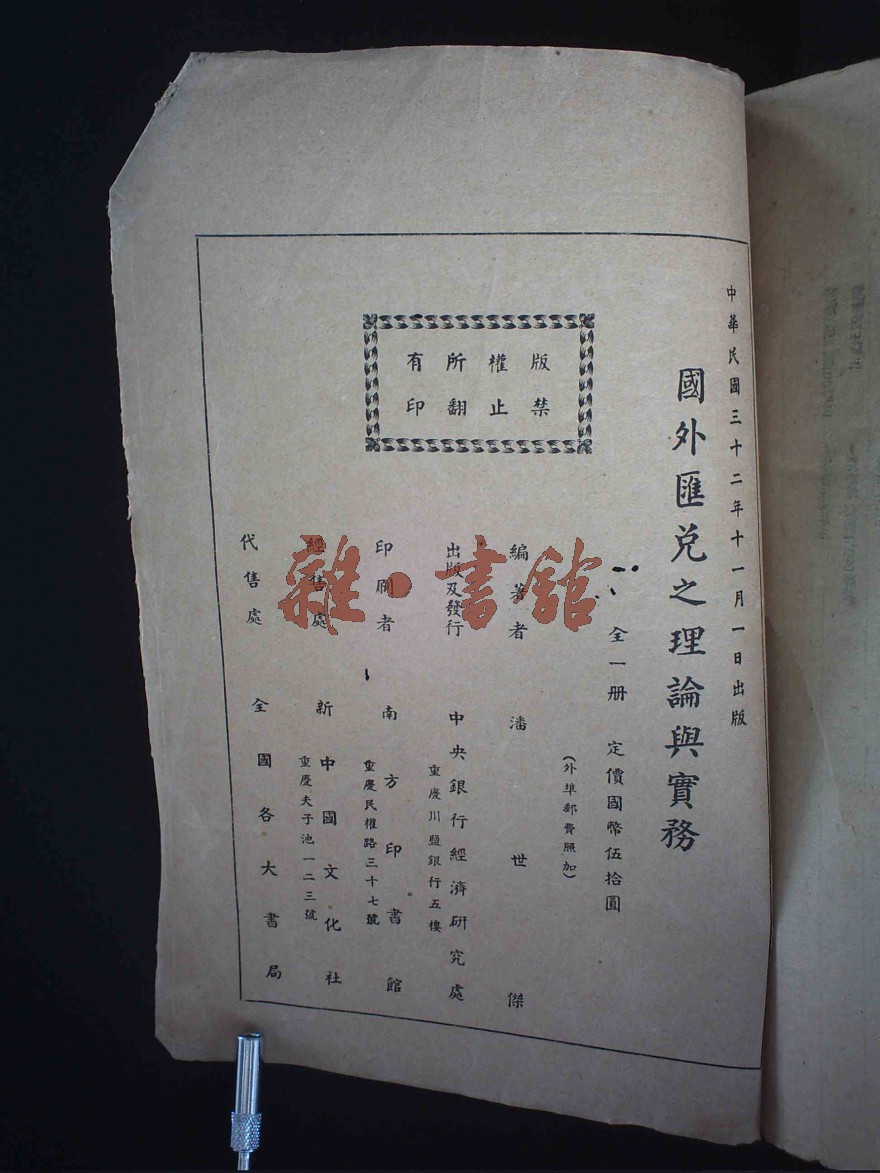 中華民國三十二年十一月一日出版
國外匯兑之理論與實務
全一册 定價國幣伍拾圓
(外埠郵費照加)
版權所有
禁止翻印
編著者 潘世傑
出版及發行 中央銀行經濟研究處
重慶川鹽銀行五樓
印刷者 南方印書館
重慶民權路三十七號
經售處 新中國文化社
重慶夫子池一二三號
代售處 全國各大書局
雜·書館